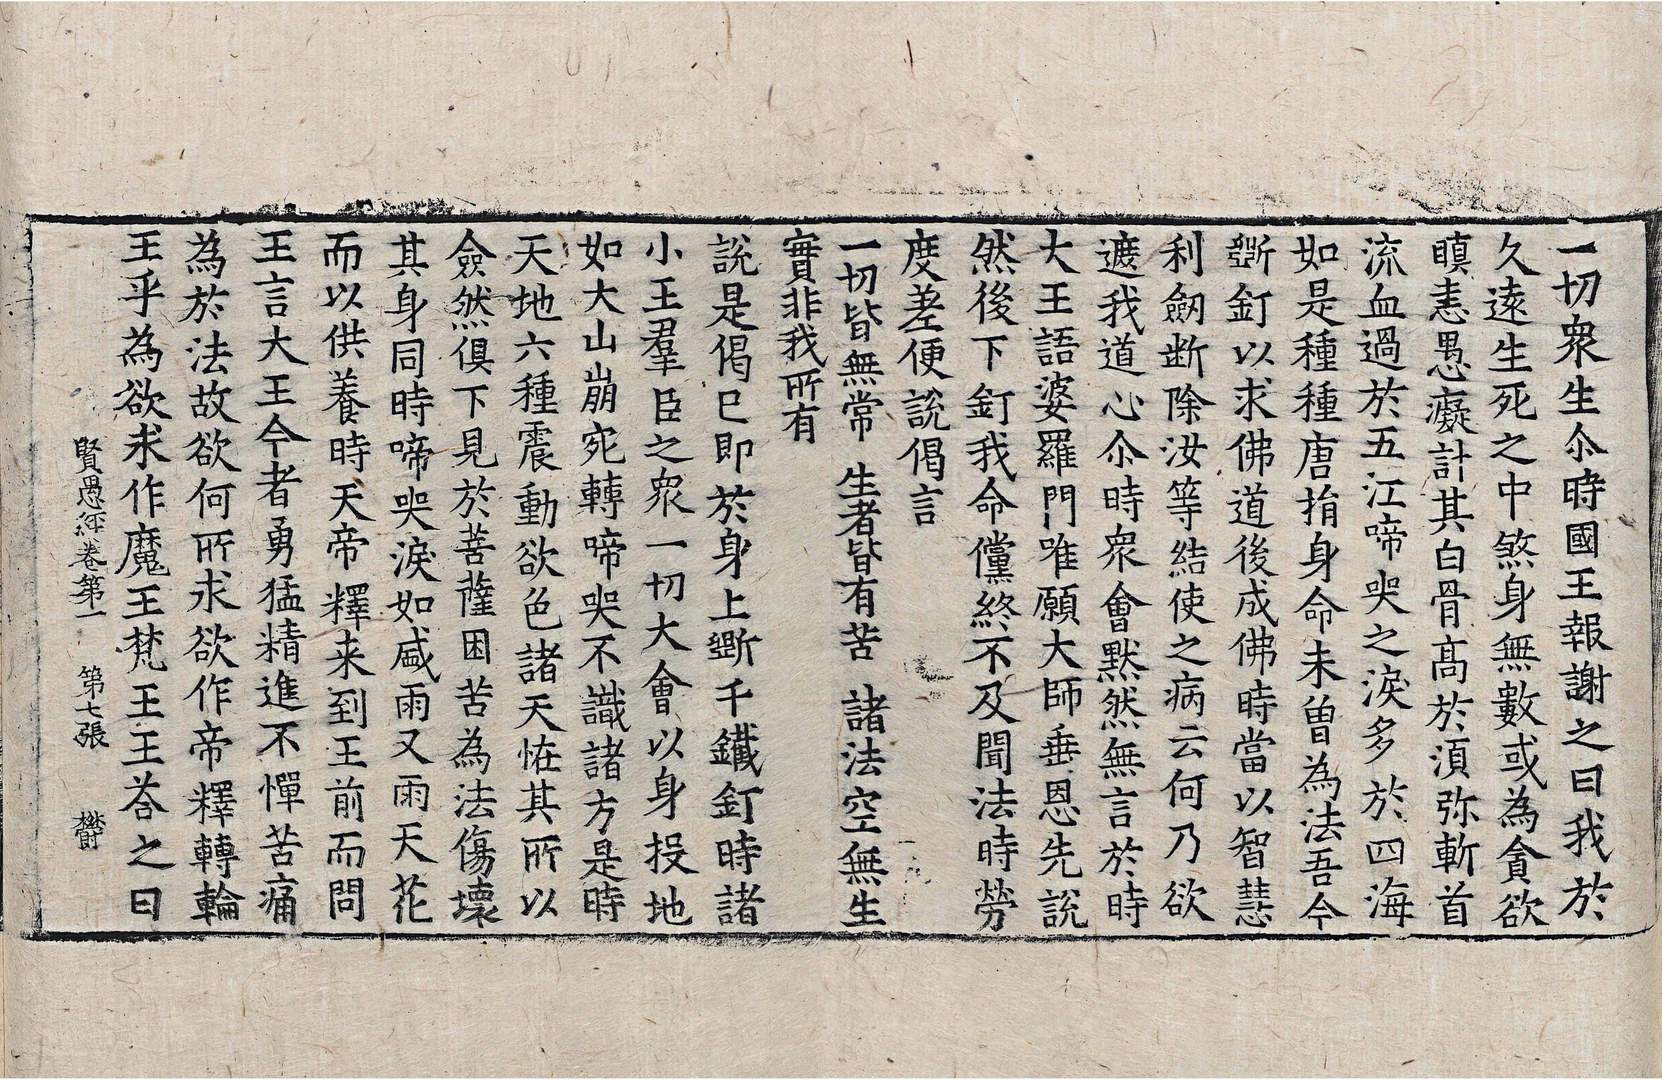 一切衆生尒時國王報謝之曰我於
久遠生死之中煞身無數或爲貪欲
瞋恚愚癡計其白骨髙於湏弥斬首
流血過於五江啼哭之淚多於四海
如是種種唐捐身命未曾爲法吾今
斵釘以求佛道後成佛時當以智慧
利劒断除汝等結使之病云何乃欲
遮我道心尒時衆會默然無言於時
大王語婆羅門唯願大師垂恩先說
然後下釘我命儻終不及聞法時勞
度差便說偈言
一切皆無常　生者皆有苦　諸法空無生
實非我所有
說是偈已即於身上斵千鐵釘時諸
小王羣臣之衆一切大會以身投地
如大山崩宛轉啼哭不識諸方是時
天地六種震動欲色諸天恠其所以
僉然俱下見於菩薩困苦爲法傷壞
其身同時啼哭淚如盛雨又雨天花
而以供養時天帝釋来到王前而問
王言大王今者勇猛精進不憚苦痛
爲於法故欲何所求欲作帝釋轉輪
王乎爲欲求作魔王梵王王荅之曰
賢愚經卷第一　第七張　欝